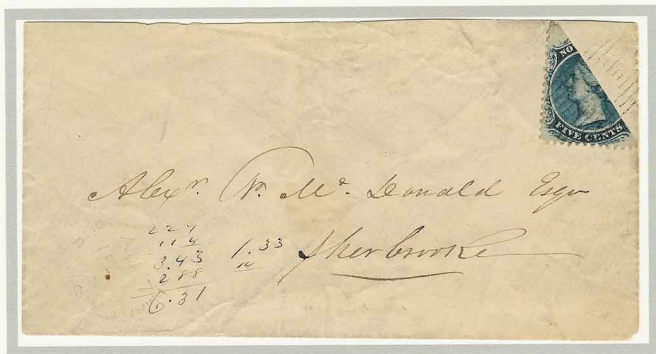 NO
FIVE CENTS
Alexr. N. Mc. Donald Esqr
Sherbrooke
2 2 9
1.14
3.43
2 88
6.31
1.33